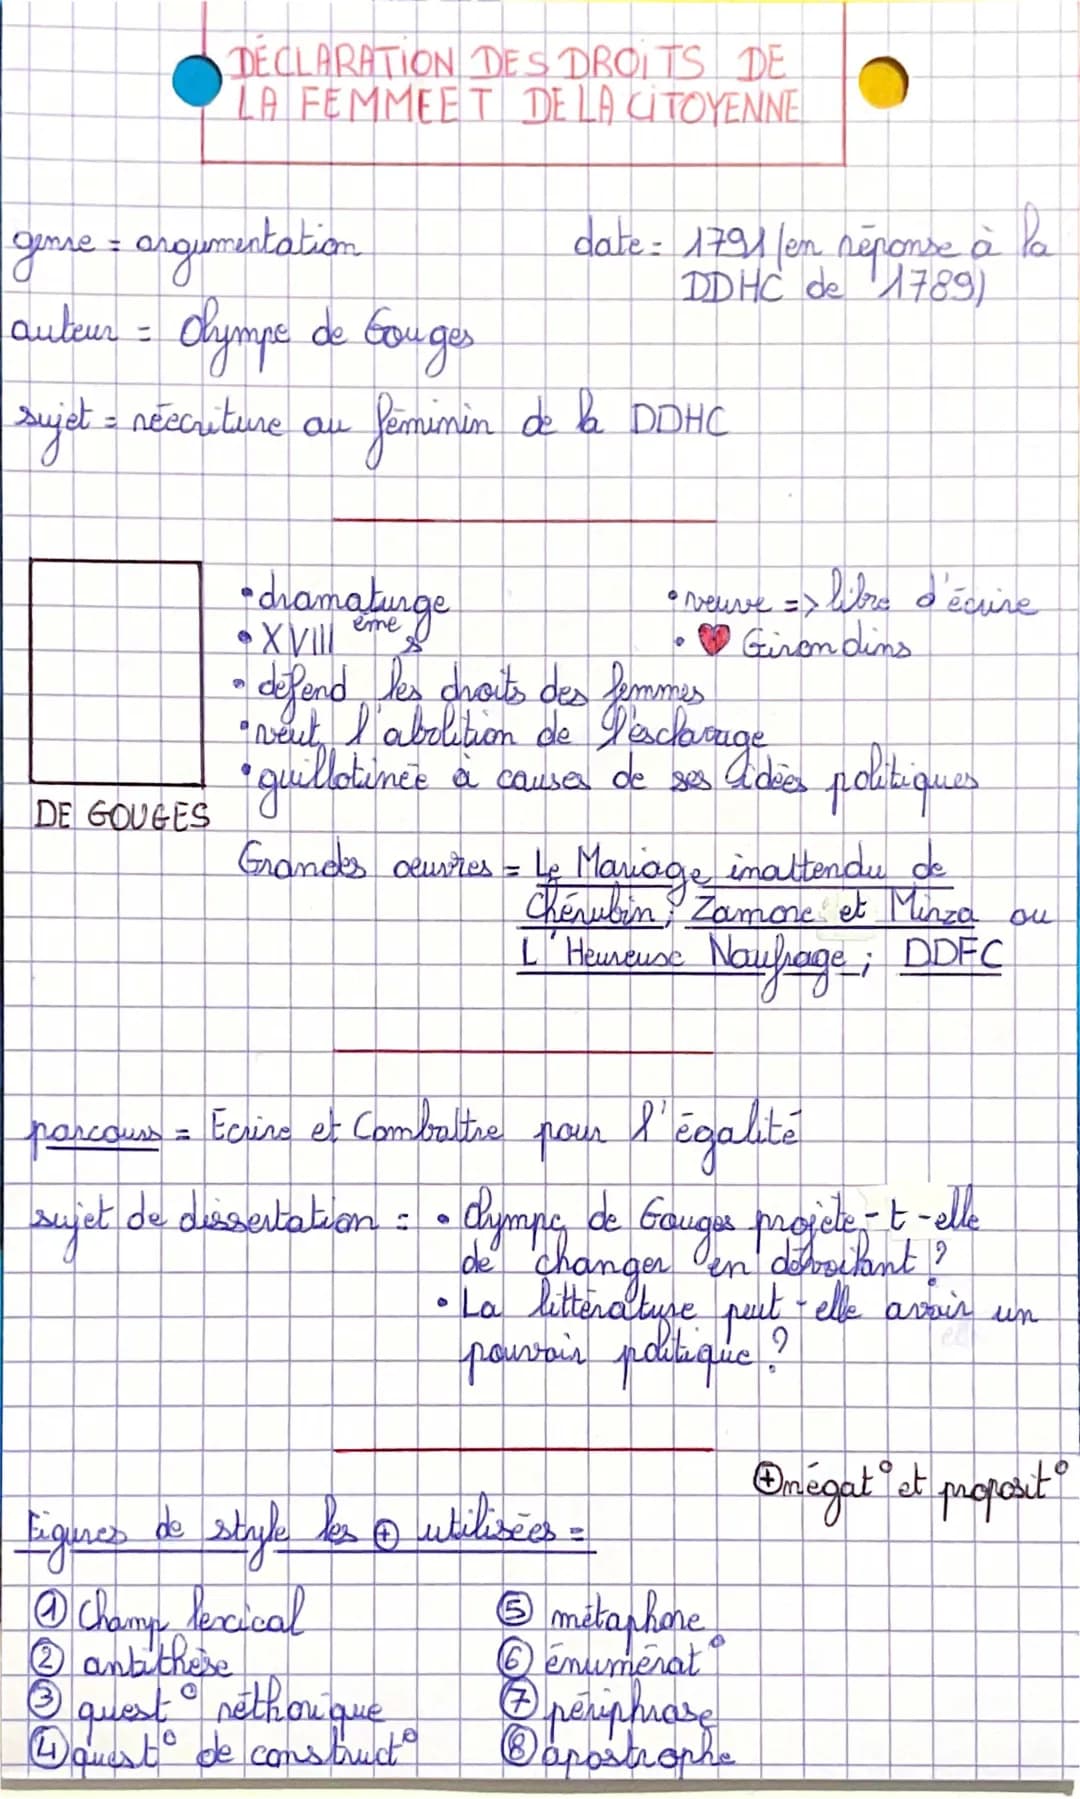 DÉCLARATION DES DROITS DE
LA FEMME ET DE LA CITOYENNE
genre = argumentation
date = 1791 (en réponse à la
DDHC de 1789)
auteur = Olympe de Gouges
sujet = réécriture au féminin de la DDHC
• dramaturge
• XVIIIème s
• défend les droits des femmes
• veut l'abolition de l'esclavage
• guillotinée à causes de ses idées politiques
• veuve => libre d'écrire
• ❤ Girondins
DE GOUGES
Grandes oeuvres = Le Mariage inattendu de
Chérubin ; Zamore et Minza ou
L'Heureuse Naufrage ; DDFC
parcours = Ecrire et Combattre pour l'égalité
sujet de dissertation = • Olympe de Gouges projète-t-elle
de changer en dévoilant ?
• La littérature peut-elle avoir un
pouvoir politique ?
⊕ négat° et proposit°
Figures de style les ⊕ utilisées =
① Champ lexical
② antithèse
③ quest° réthorique
④ quest° de construct°
⑤ métaphore
⑥ énumérat°
⑦ périphrase
⑧ apostrophe